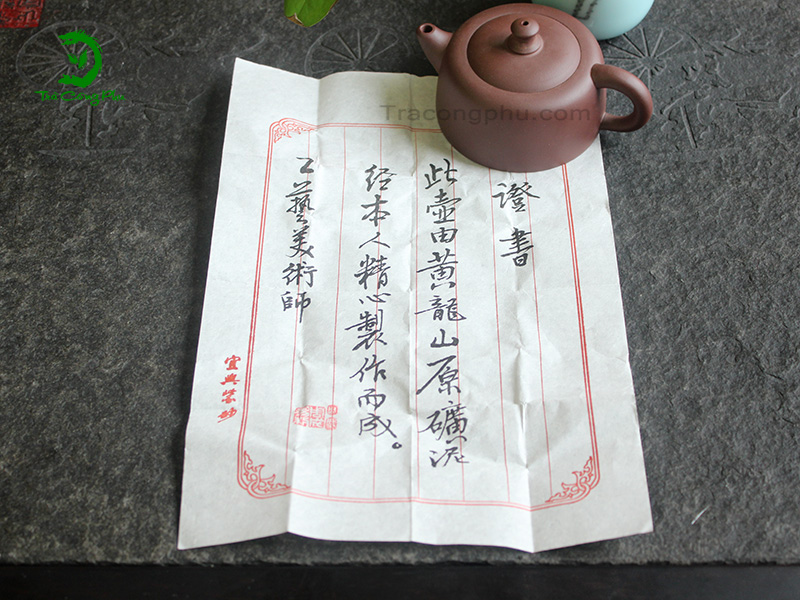 證書
此壺由黃龍山原礦泥
經本人精心製作而成。
工藝美術師
宜興紫砂
Trà Công Phu
Tracongphu.com